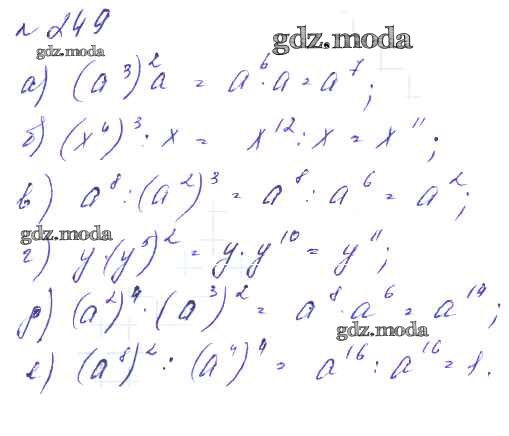 № 249
gdz.moda
gdz.moda
а) (a³)²a = a⁶·a = a⁷;
б) (x⁴)³ : x = x¹² : x = x¹¹;
в) a⁸ : (a²)³ = a⁸ : a⁶ = a²;
gdz.moda
г) y·(y⁵)² = y·y¹⁰ = y¹¹;
д) (a²)⁴·(a³)² = a⁸·a⁶ = a¹⁴;
gdz.moda
е) (a⁸)² : (a⁴)⁴ = a¹⁶ : a¹⁶ = 1.